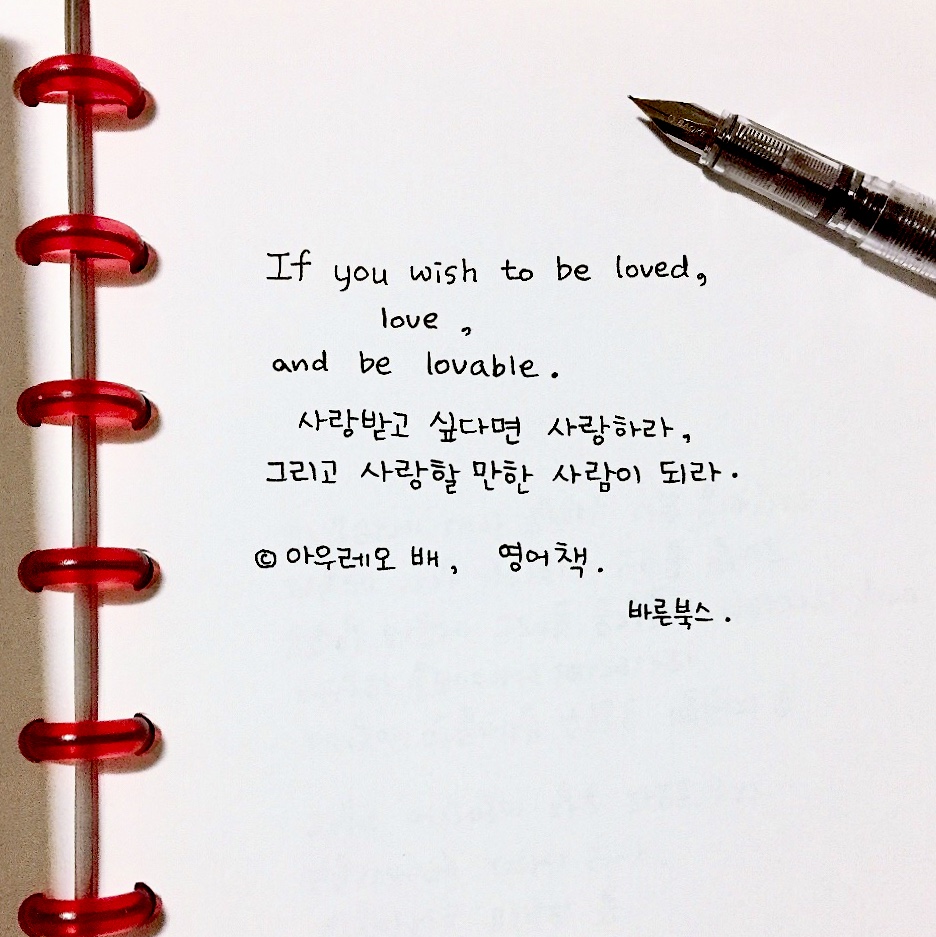 If you wish to be loved,
love ,
and be lovable.
사랑받고 싶다면 사랑하라,
그리고 사랑할 만한 사람이 되라.
© 아우레오 배, 영어책.
바른북스.